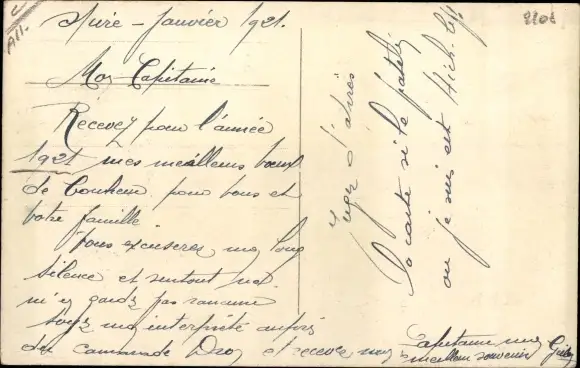 All.
2206
Janvier 1921.
Mon Capitaine
Recevez pour l'année
1921 mes meilleurs vœux
de bonheur pour vous et
votre famille
Vous excuserez mon long
silence et surtout ne
m'en gardez pas rancune
soyez mon interprète auprès
du camarade et recevez mon
Capitaine mes
meilleurs souvenirs
Jugez d'après
la carte si le patelin
ou je suis est